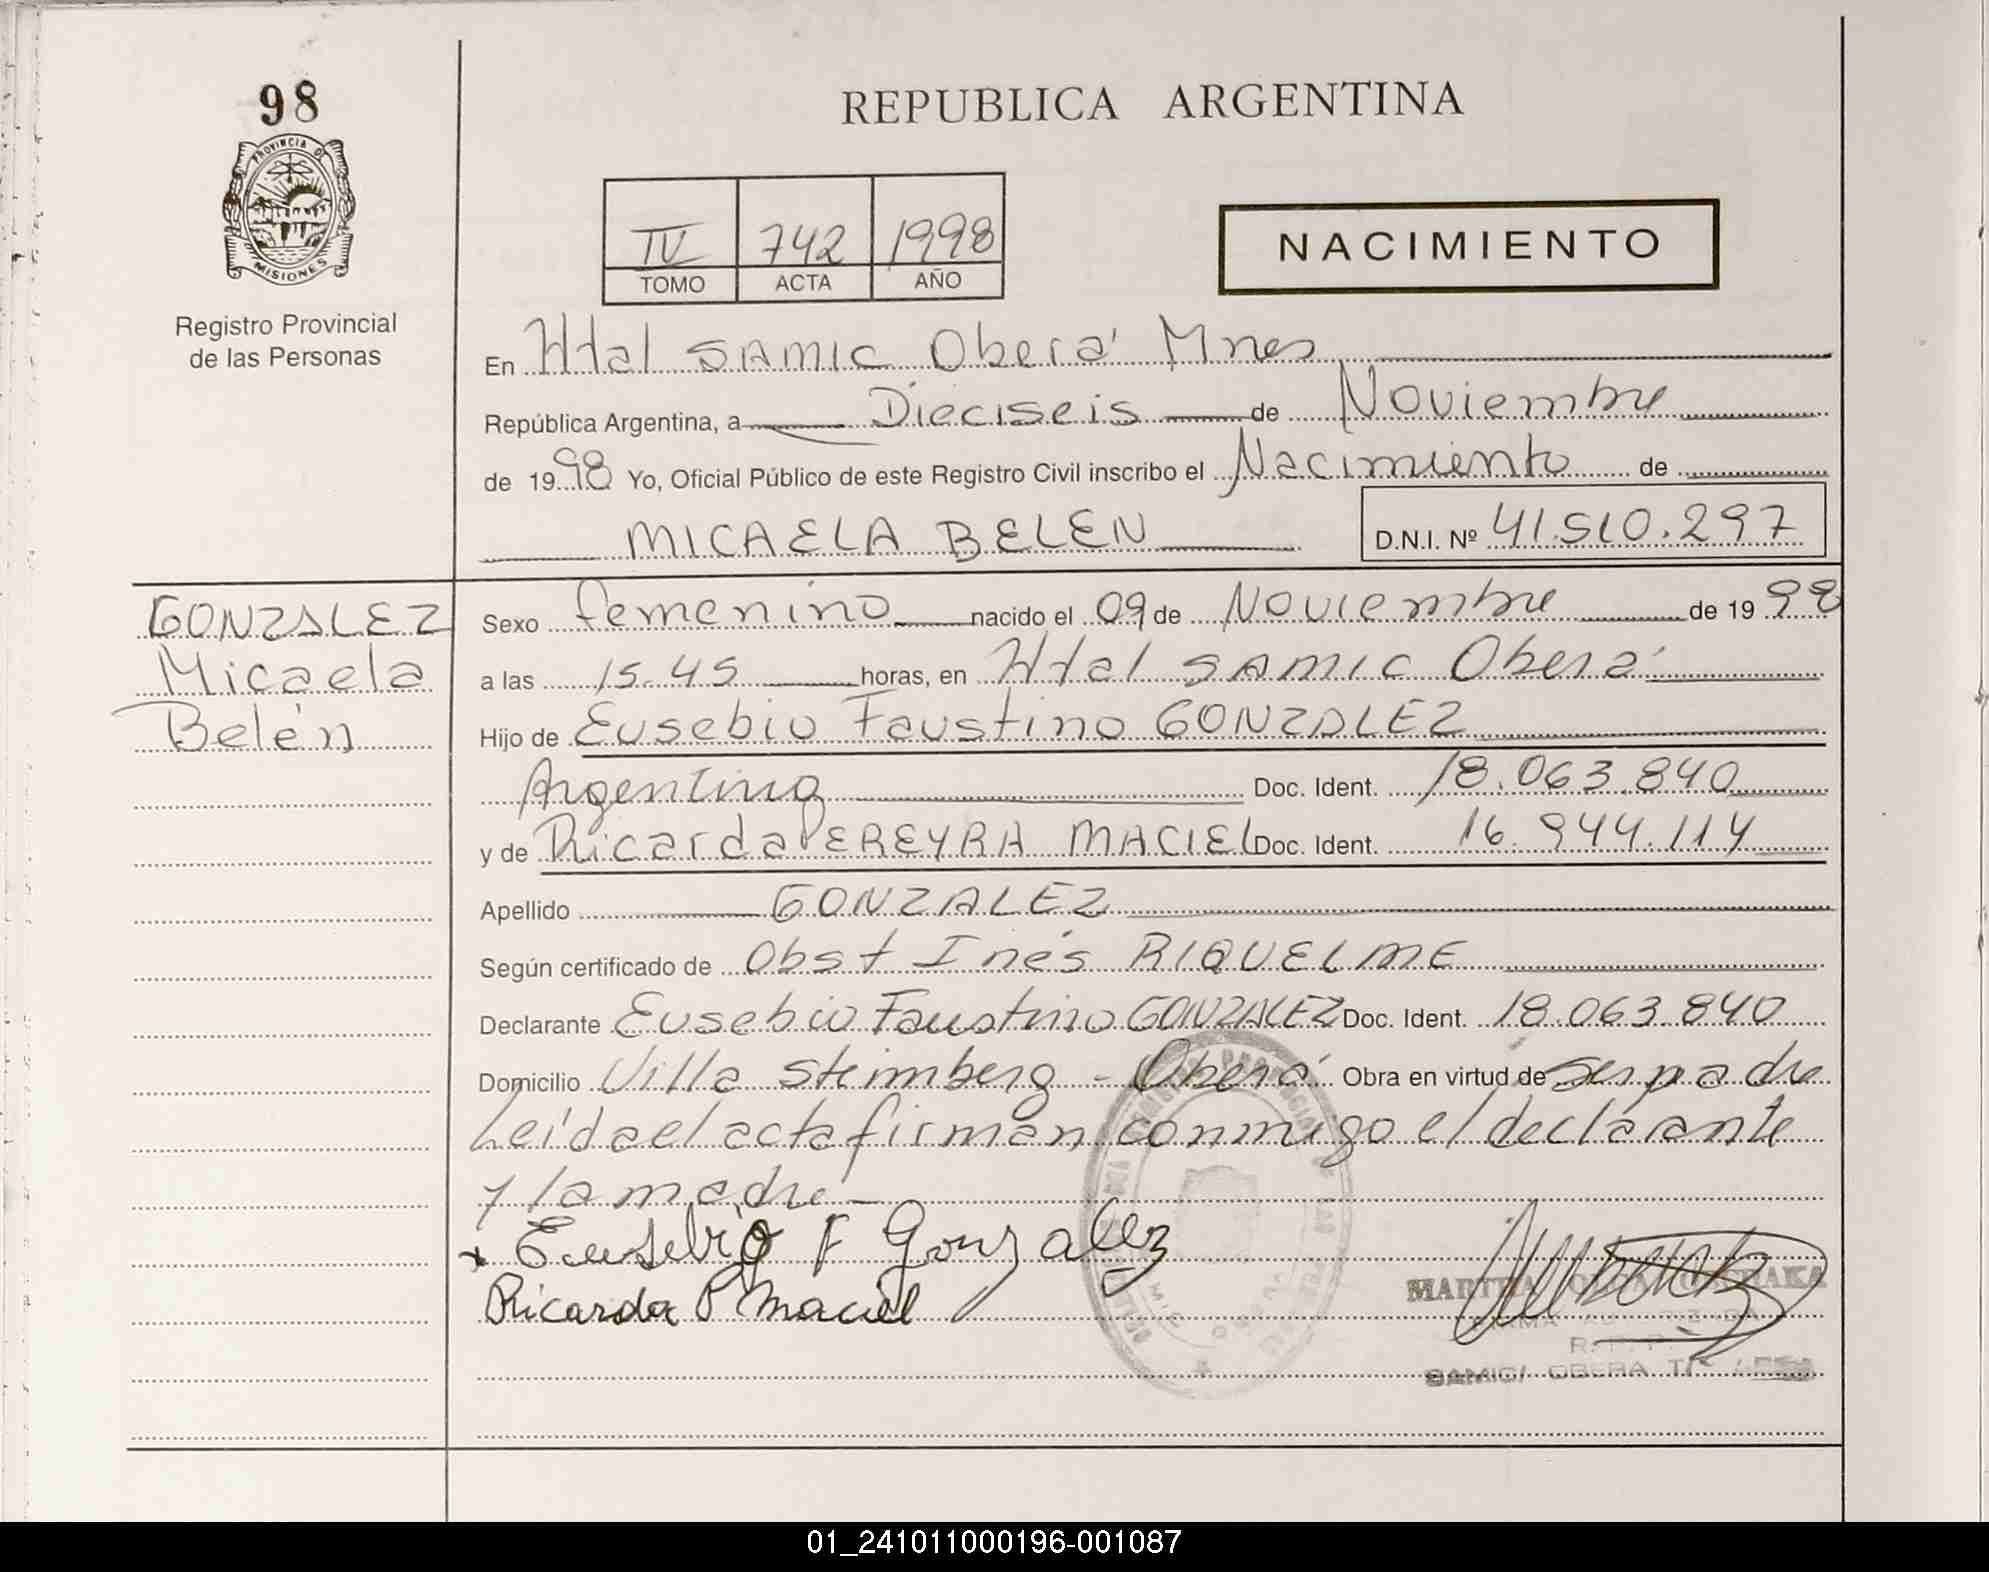 98
REPUBLICA ARGENTINA
PROVINCIA DE
MISIONES
IV 742 1998
TOMO ACTA AÑO
NACIMIENTO
Registro Provincial
de las Personas
En Htal SAMIC Oberá Mnes
República Argentina, a Dieciseis de Noviembre
de 1998 Yo, Oficial Público de este Registro Civil inscribo el Nacimiento de
MICAELA BELEN D.N.I. Nº 41.510.297
GONZALEZ
Micaela
Belén
Sexo femenino nacido el 09 de Noviembre de 1998
a las 15.45 horas, en Htal SAMIC Oberá
Hijo de Eusebio Faustino GONZALEZ
Argentino Doc. Ident. 18.063.840
y de Ricarda PEREYRA MACIEL Doc. Ident. 16.944.114
Apellido GONZALEZ
Según certificado de Obst Inés RIQUELME
Declarante Eusebio Faustino GONZALEZ Doc. Ident. 18.063.840
Domicilio Villa Steimberg - Oberá Obra en virtud de ser padre
Leída el acta firman conmigo el declarante
y la madre
x Eusebio F Gonzalez
Ricarda P Maciel
MARTHA
SAMIC/ OBERA
01_241011000196-001087